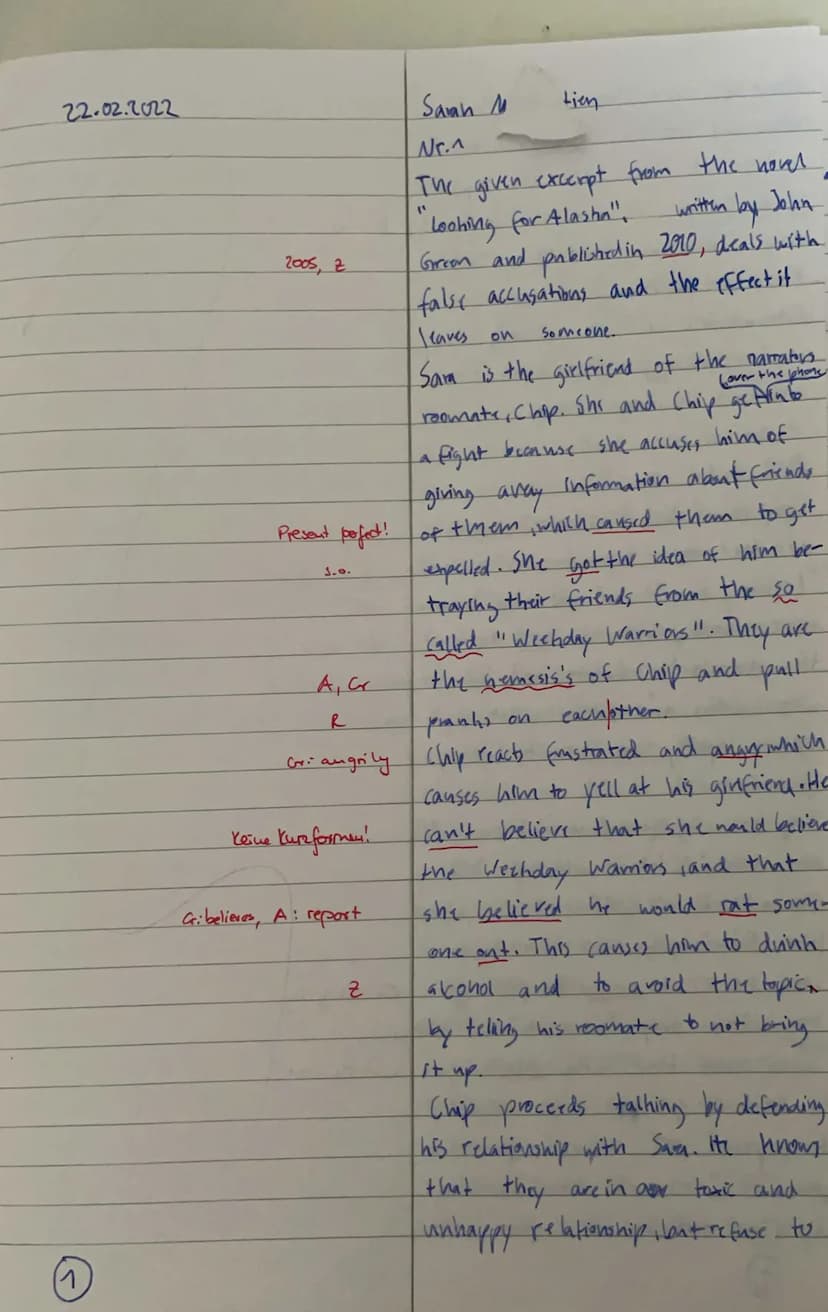 22.02.2022
Sarah M tien
Nr.1
The given excerpt from the novel
"Looking for Alaska", written by John
2005, Z
Green and published in 2010, deals with
false accusations and the effect it
leaves on someone.
Sara is the girlfriend of the narrators
(over the phone
roomate, Chip. She and Chip get into
a fight because she accuses him of
giving away information about friends
Present perfect!
of them, which caused them to get
s.o.
expelled. She got the idea of him be-
traying their friends from the so
called "Weekday Warriors". They are
A, Gr
the nemesis's of Chip and pull
R
pranks on each|other.
Gr: angrily
Chip reacts frustrated and angry, which
causes him to yell at his girlfriend. He
Keine Kurzformen!
can't believe that she would believe
the Weekday Warriors, and that
Gr: believes, A: report
she believed he would rat some-
one out. This causes him to drink
Z
alcohol and to avoid the topic,
by telling his roomate to not bring
it up.
Chip proceeds talking by defending
his relationship with Sara. He knows
that they are in a toxic and
unhappy relationship, but refuse to
1